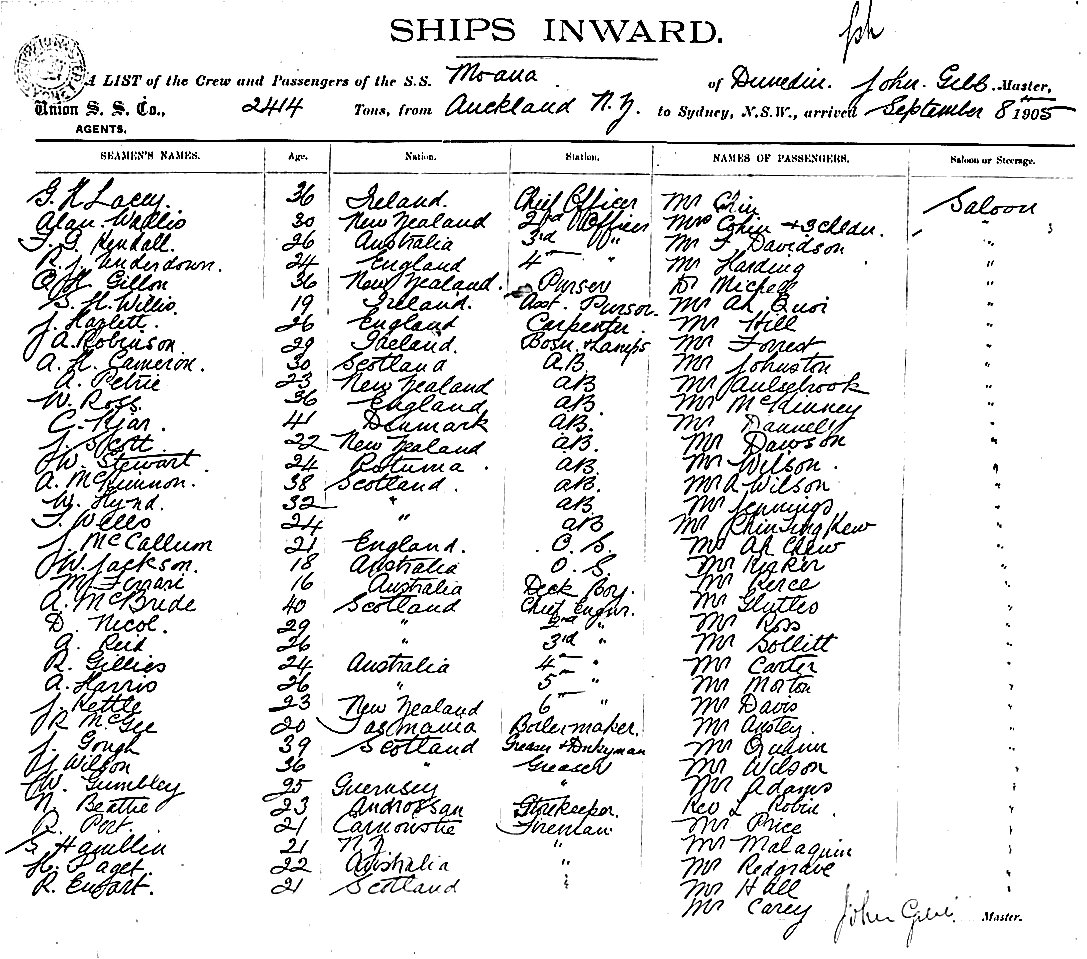 SHIPS INWARD.
A LIST of the Crew and Passengers of the S.S. Moana of Dunedin. John. Gibb. Master,
Union S. S. Co., 2414 Tons, from Auckland N.Z. to Sydney, N.S.W., arrived September 8th 1905
AGENTS.
SEAMEN'S NAMES. Age. Nation. Station. NAMES OF PASSENGERS. Saloon or Steerage.
Lacey. 36 Ireland. Chief Officer Mr Chin Saloon
Alan Wallis 30 New Zealand 2nd Officer Mrs Chin + 3 "
Kendall. 26 Australia 3rd " Mr F Davidson "
R. J. Underdown. 24 England 4th " Mr Harding "
Gillon 36 New Zealand. Purser Dr Michell "
S. H. Willis. 19 Ireland. Asst. Purser. Mr Ah Quoi "
J. Hazlett. 26 England Carpenter. Mr Hill "
J. A. Robinson 29 Ireland. Bosn. & Lamps Mr Forrest "
A. H. Cameron. 30 Scotland A.B. Mr Johnston "
A. Petrie 23 New Zealand AB Mr "
W. Ross. 36 England AB. Mr McKinney "
C. Kjar. 41 Denmark AB. Mr "
J. Scott 22 New Zealand AB. Mr Dawson "
W. Stewart 24 Rotuma. AB. Mr Wilson. "
A. McKinnon. 38 Scotland. AB. Mr A Wilson "
W. Hynd. 32 " AB. Mr Jennings "
Wells 24 " AB Mr "
J. McCallum 21 England. O. S. Mr Ah Chew "
W. Jackson. 18 Australia O. S. Mr "
M. Ferrari 16 Australia Deck Boy. Mr Pierce "
A. McBride 40 Scotland Chief Engnr. Mr "
D. Nicol. 29 " 2nd " Mr Ross "
Reid 26 " 3rd " Mr Sollitt "
R. Gillies 24 Australia 4th " Mr Carter "
A. Harris 26 " 5th " Mr Morton "
J. Kettle 23 New Zealand 6th " Mr Davis "
R McGee 20 Tasmania Boilermaker. Mr Anstey. "
J. Gough 39 Scotland Greaser & Dnkyman Mr Quinn "
Wilson 36 " Greaser Mr Wilson "
W. Gumbley 25 Guernsey " Mr Adams "
N. Beattie 23 Androssan Storekeeper. Rev L. Robin. "
Port. 21 Carnoustie Fireman Mr Price "
S Hamillin 21 N.Z " Mr Malaquin "
H. Paget. 22 Australia " Mr Redgrave "
R. Ewart. 21 Scotland " Mr Hall "
Mr Carey John Gibb. Master.